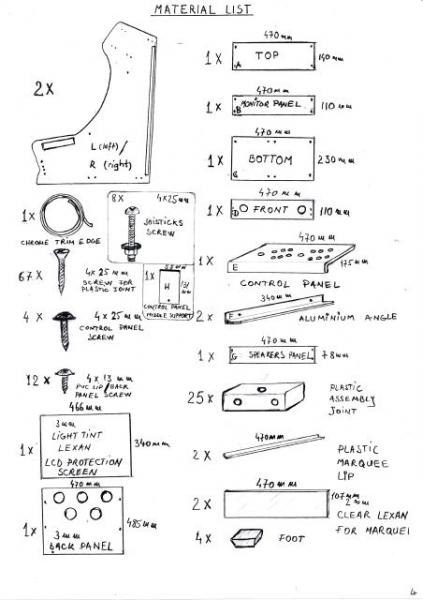 MATERIAL LIST
2X
L (left) /
R (right)
1X
CHROME TRIM EDGE
8X 4x25mm
JOISTICKS
SCREW
67X
4x 25 mm
SCREW FOR
PLASTIC JOINT
1X
H
CONTROL PANEL
MIDDLE SUPPORT
4X
4x 25 mm
CONTROL PANEL
SCREW
12X
4 x 13 mm
PVC LIP/BACK
PANEL SCREW
466 mm
1X
3mm
LIGHT TINT
LEXAN
LCD PROTECTION
SCREEN
340mm
470 mm
1X
3 mm
BACK PANEL
485mm
470mm
1X
TOP
A
140mm
470mm
1X
MONITOR PANEL
B
110 mm
470 mm
1X
BOTTOM
C
230 mm
470 mm
1X
D FRONT
110 mm
470 mm
1X
E
175 mm
CONTROL PANEL
340 mm
2X
F
ALUMINIUM ANGLE
470 mm
1X
G SPEAKERS PANEL
78mm
25X
PLASTIC
ASSEMBLY
JOINT
470mm
2X
PLASTIC
MARQUEE
LIP
470 mm
2X
107mm
2mm
CLEAR LEXAN
FOR MARQUEE
4X
FOOT
4